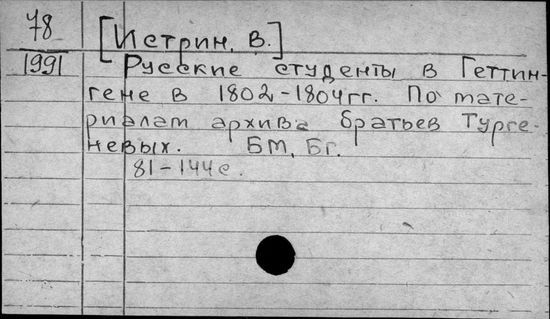 78
[Истрин, В.]
1991
Русские студенты в Геттин-
гене в 1802-1804 гг. По мате-
риалам архива братьев Турге-
невых. БМ, Бг.
81-144 с.